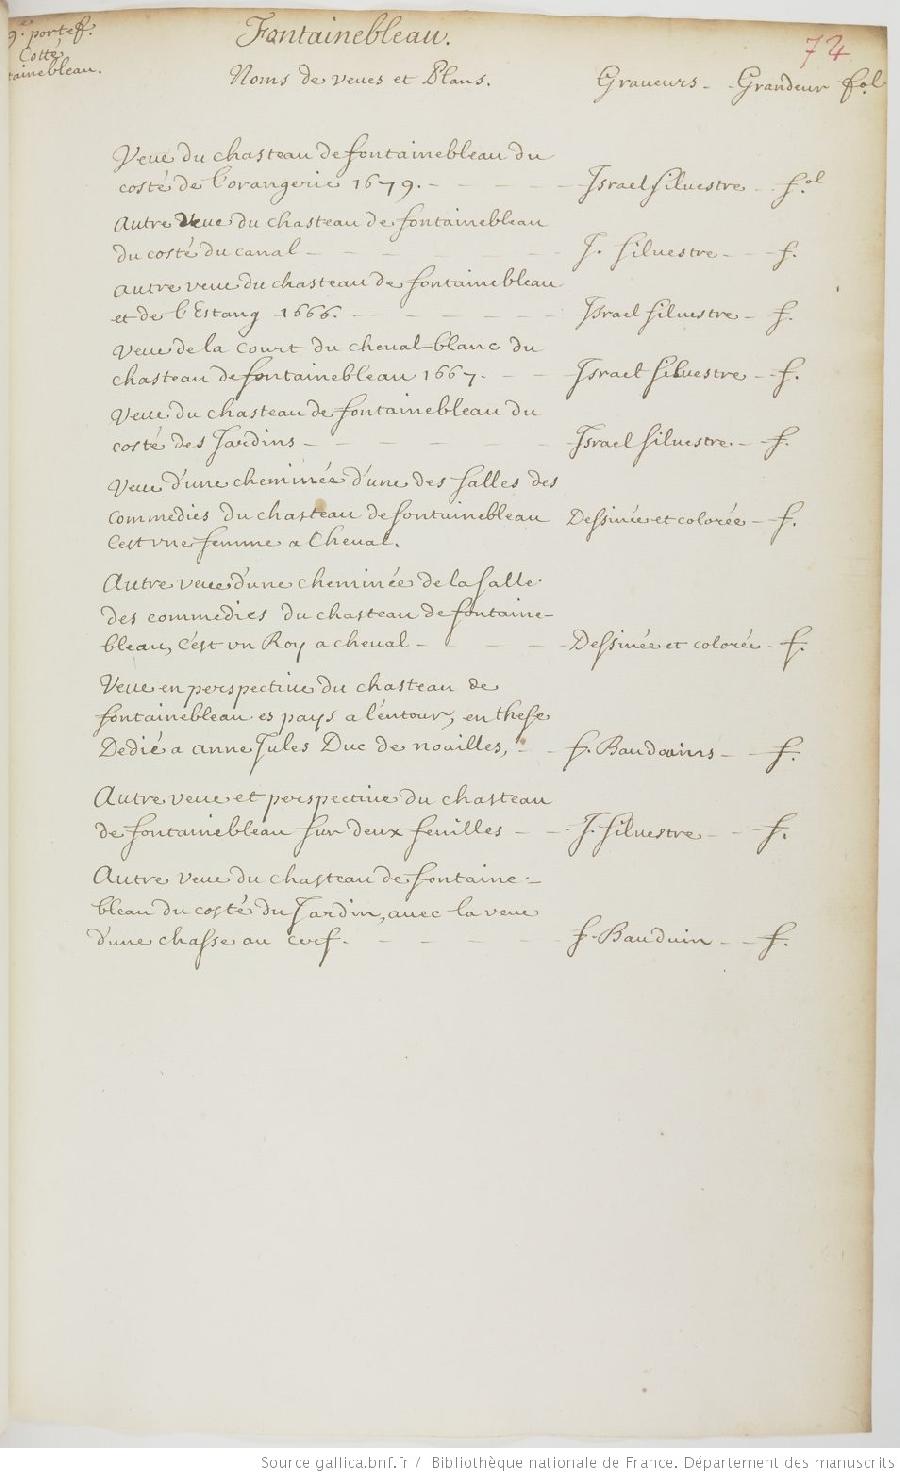 9.e portef.
Cotté
tainebleau.
Fontainebleau.
72
Noms de veues et Plans. Graveurs - Grandeur fol
Veue du chasteau de fontainebleau du
costé de l'orangerie 1679. - - - - Israel Silvestre - f.ol
Autre veue du chasteau de fontainebleau
du costé du canal - - - - - - J. Silvestre - - f.
autre veue du chasteau de fontainebleau
et de l'Estang 1666. - - - - - Israel Silvestre - f.
Veue de la Court du cheval-blanc du
chasteau de fontainebleau 1667. - - Israel Silvestre - f.
Veue du chasteau de fontainebleau du
costé des Jardins - - - - - Israel Silvestre. - f.
Veue d'une cheminée d'une des salles des
commedies du chasteau de fontainebleau Dessinée et colorée - f.
C'est vne femme a Cheval.
Autre veue d'une cheminée de la Salle
des commedies du chasteau de fontaine-
bleau, c'est vn Roy a cheval - - - - Dessinée et colorée - f.
Veue en perspective du chasteau de
fontainebleau es pays a l'entour, en these
Dedié a anne Jules Duc de noailles, - - f. Baudouins - - f.
Autre veue et perspective du chasteau
de fontainebleau sur deux feuilles - - J. Silvestre - - f.
Autre veue du chasteau de fontaine-
bleau du costé du Jardin, avec la veue
d'une chasse au cerf. - - - - - f. Bauduin - - f.
Source gallica.bnf.fr / Bibliothèque nationale de France. Département des manuscrits